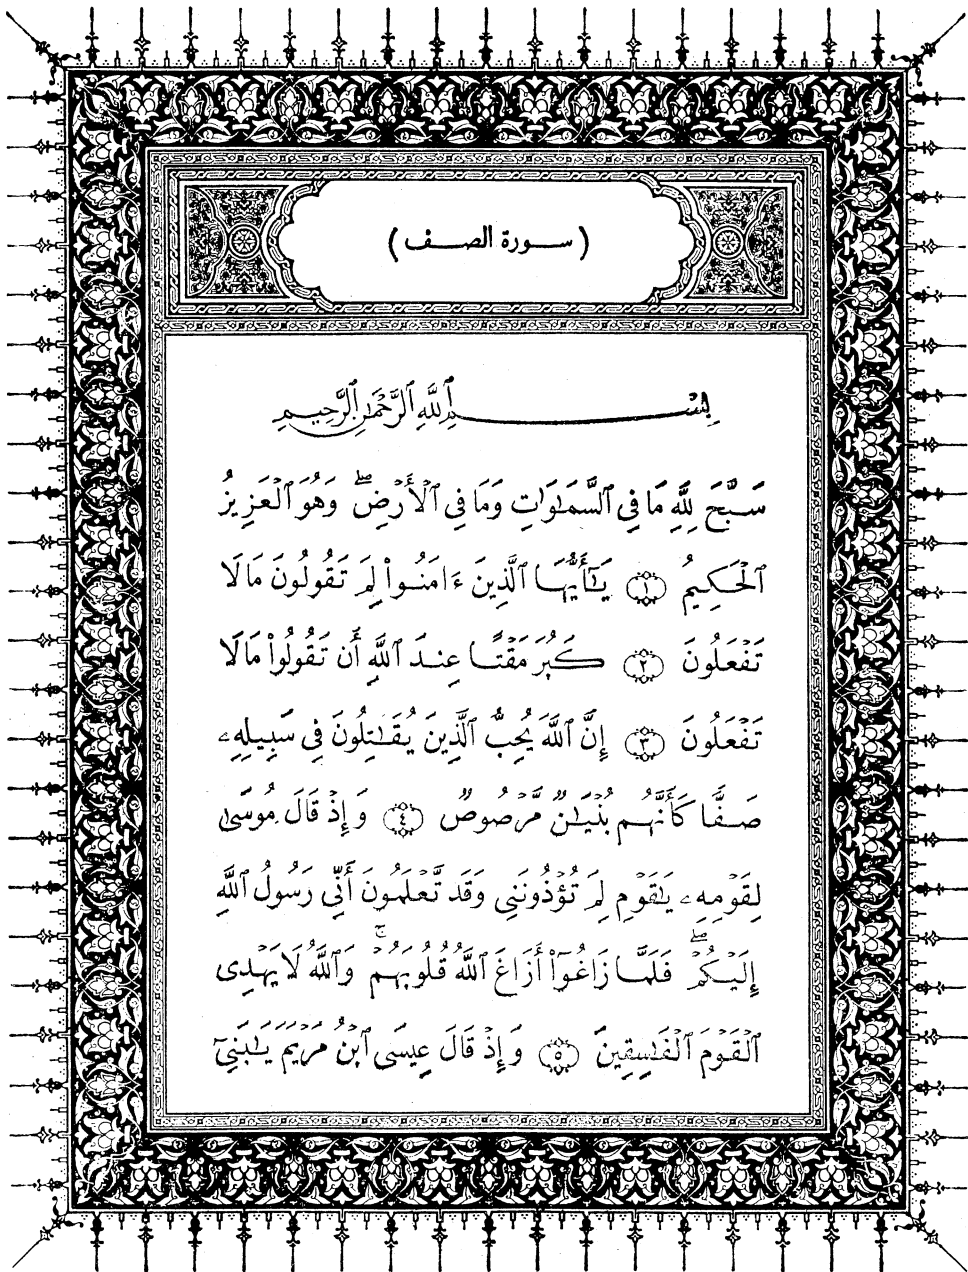 ( سورة الصف )
بِسْمِ ٱللَّهِ ٱلرَّحْمَٰنِ ٱلرَّحِيمِ
سَبَّحَ لِلَّهِ مَا فِي ٱلسَّمَٰوَٰتِ وَمَا فِي ٱلْأَرْضِ ۖ وَهُوَ ٱلْعَزِيزُ
ٱلْحَكِيمُ ﴿١﴾ يَٰٓأَيُّهَا ٱلَّذِينَ ءَامَنُوا۟ لِمَ تَقُولُونَ مَا لَا
تَفْعَلُونَ ﴿٢﴾ كَبُرَ مَقْتًا عِندَ ٱللَّهِ أَن تَقُولُوا۟ مَا لَا
تَفْعَلُونَ ﴿٣﴾ إِنَّ ٱللَّهَ يُحِبُّ ٱلَّذِينَ يُقَٰتِلُونَ فِي سَبِيلِهِۦ
صَفًّا كَأَنَّهُم بُنْيَٰنٌ مَّرْصُوصٌ ﴿٤﴾ وَإِذْ قَالَ مُوسَىٰ
لِقَوْمِهِۦ يَٰقَوْمِ لِمَ تُؤْذُونَنِي وَقَد تَّعْلَمُونَ أَنِّي رَسُولُ ٱللَّهِ
إِلَيْكُمْ ۖ فَلَمَّا زَاغُوٓا۟ أَزَاغَ ٱللَّهُ قُلُوبَهُمْ ۚ وَٱللَّهُ لَا يَهْدِى
ٱلْقَوْمَ ٱلْفَٰسِقِينَ ﴿٥﴾ وَإِذْ قَالَ عِيسَى ٱبْنُ مَرْيَمَ يَٰبَنِيٓ